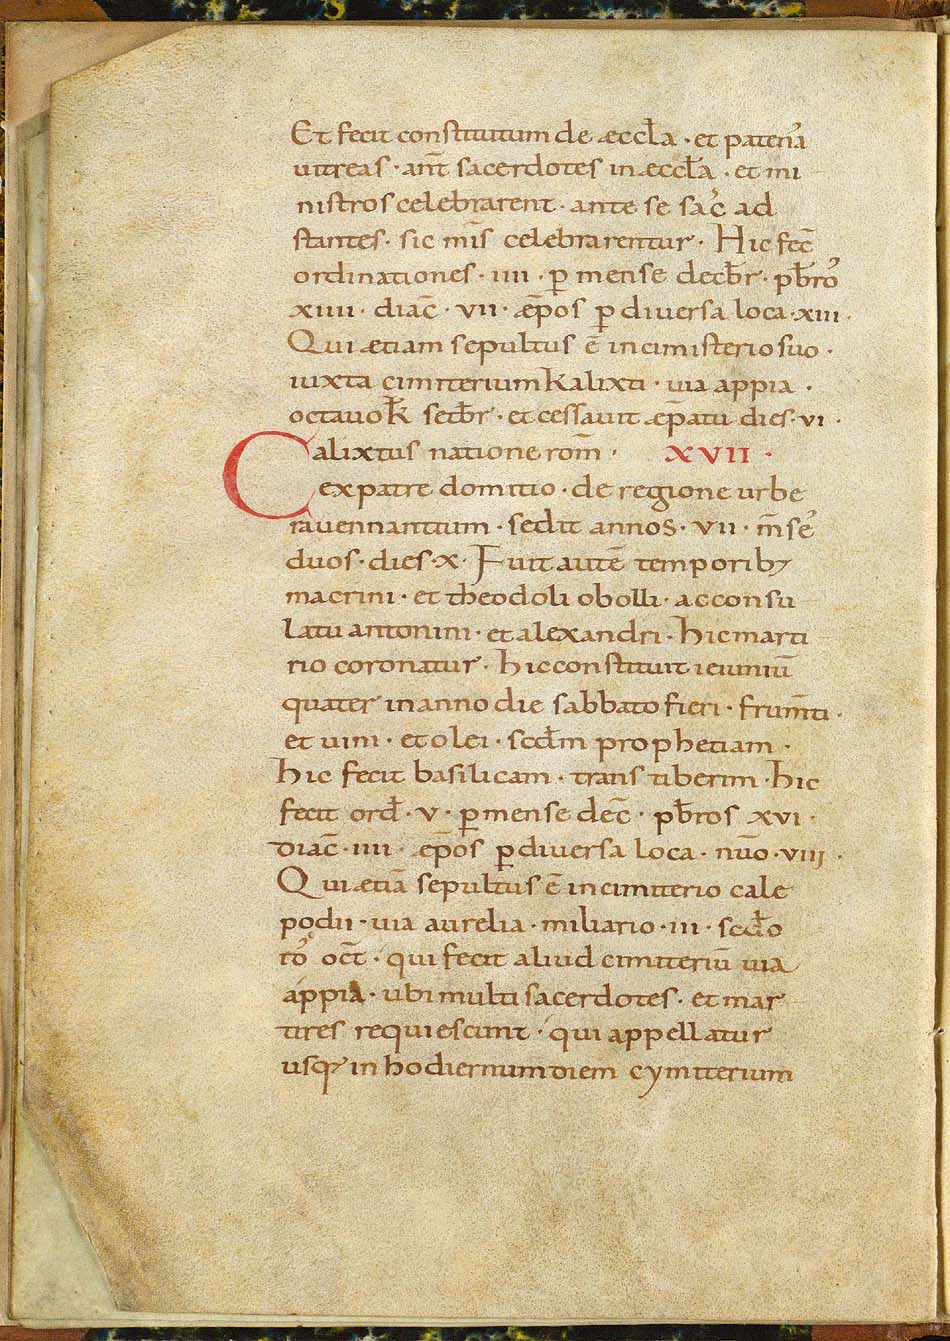 Et fecit constitutum de æccła · et patenaˢ
uitreas · ant̄ sacerdotes in æccła · et mi
nistros celebrarent · ante se sac̓ ad
stantes · sic mīs celebrarentur · Hic fec̄
ordinationes · iiii · ꝑ mense decb̄r · pb̄ro̓
xiiii · diac̄ · vii · æp̄os ꝑ diuersa loca · xiii ·
Qui ætiam sepultus ē in cimisterio suo ·
iuxta cimiterium kalixti · uia appia ·
octauo k̄ setb̄r · et cessauit æp̄atu dies · vi ·
Calixtus natione rom̄ · XVII ·
ex patre domitio · de regione urbe
rauennantium · sedit annos · vii · m̄se̓
duos · dies · x · Fuit autē temporibꝫ
macrini · et theodoli obolli · a consu
latu antonini · et alexandri · hic marti
rio coronatur · hic constituit ieiuniū
quater in anno die sabbato fieri · frum̄ti ·
et uini · et olei · scđm prophetiam ·
hic fecit basilicam · trans tiberim · hic
fecit orđ · v · ꝑ mense dec̄ · pb̄ros xvi ·
diac̄ · iiii · æp̄os ꝑ diuersa loca · nūo · viii ·
Qui ætiā sepultus ē in cimiterio cale
podii · uia aurelia · miliario · iii · scđo
to̓ oct̄ · qui fecit aliud cimiteriū uia
appia · ubi multi sacerdotes · et mar
tires requiescunt · qui appellatur
usqꝫ in hodiernum diem cymiterium